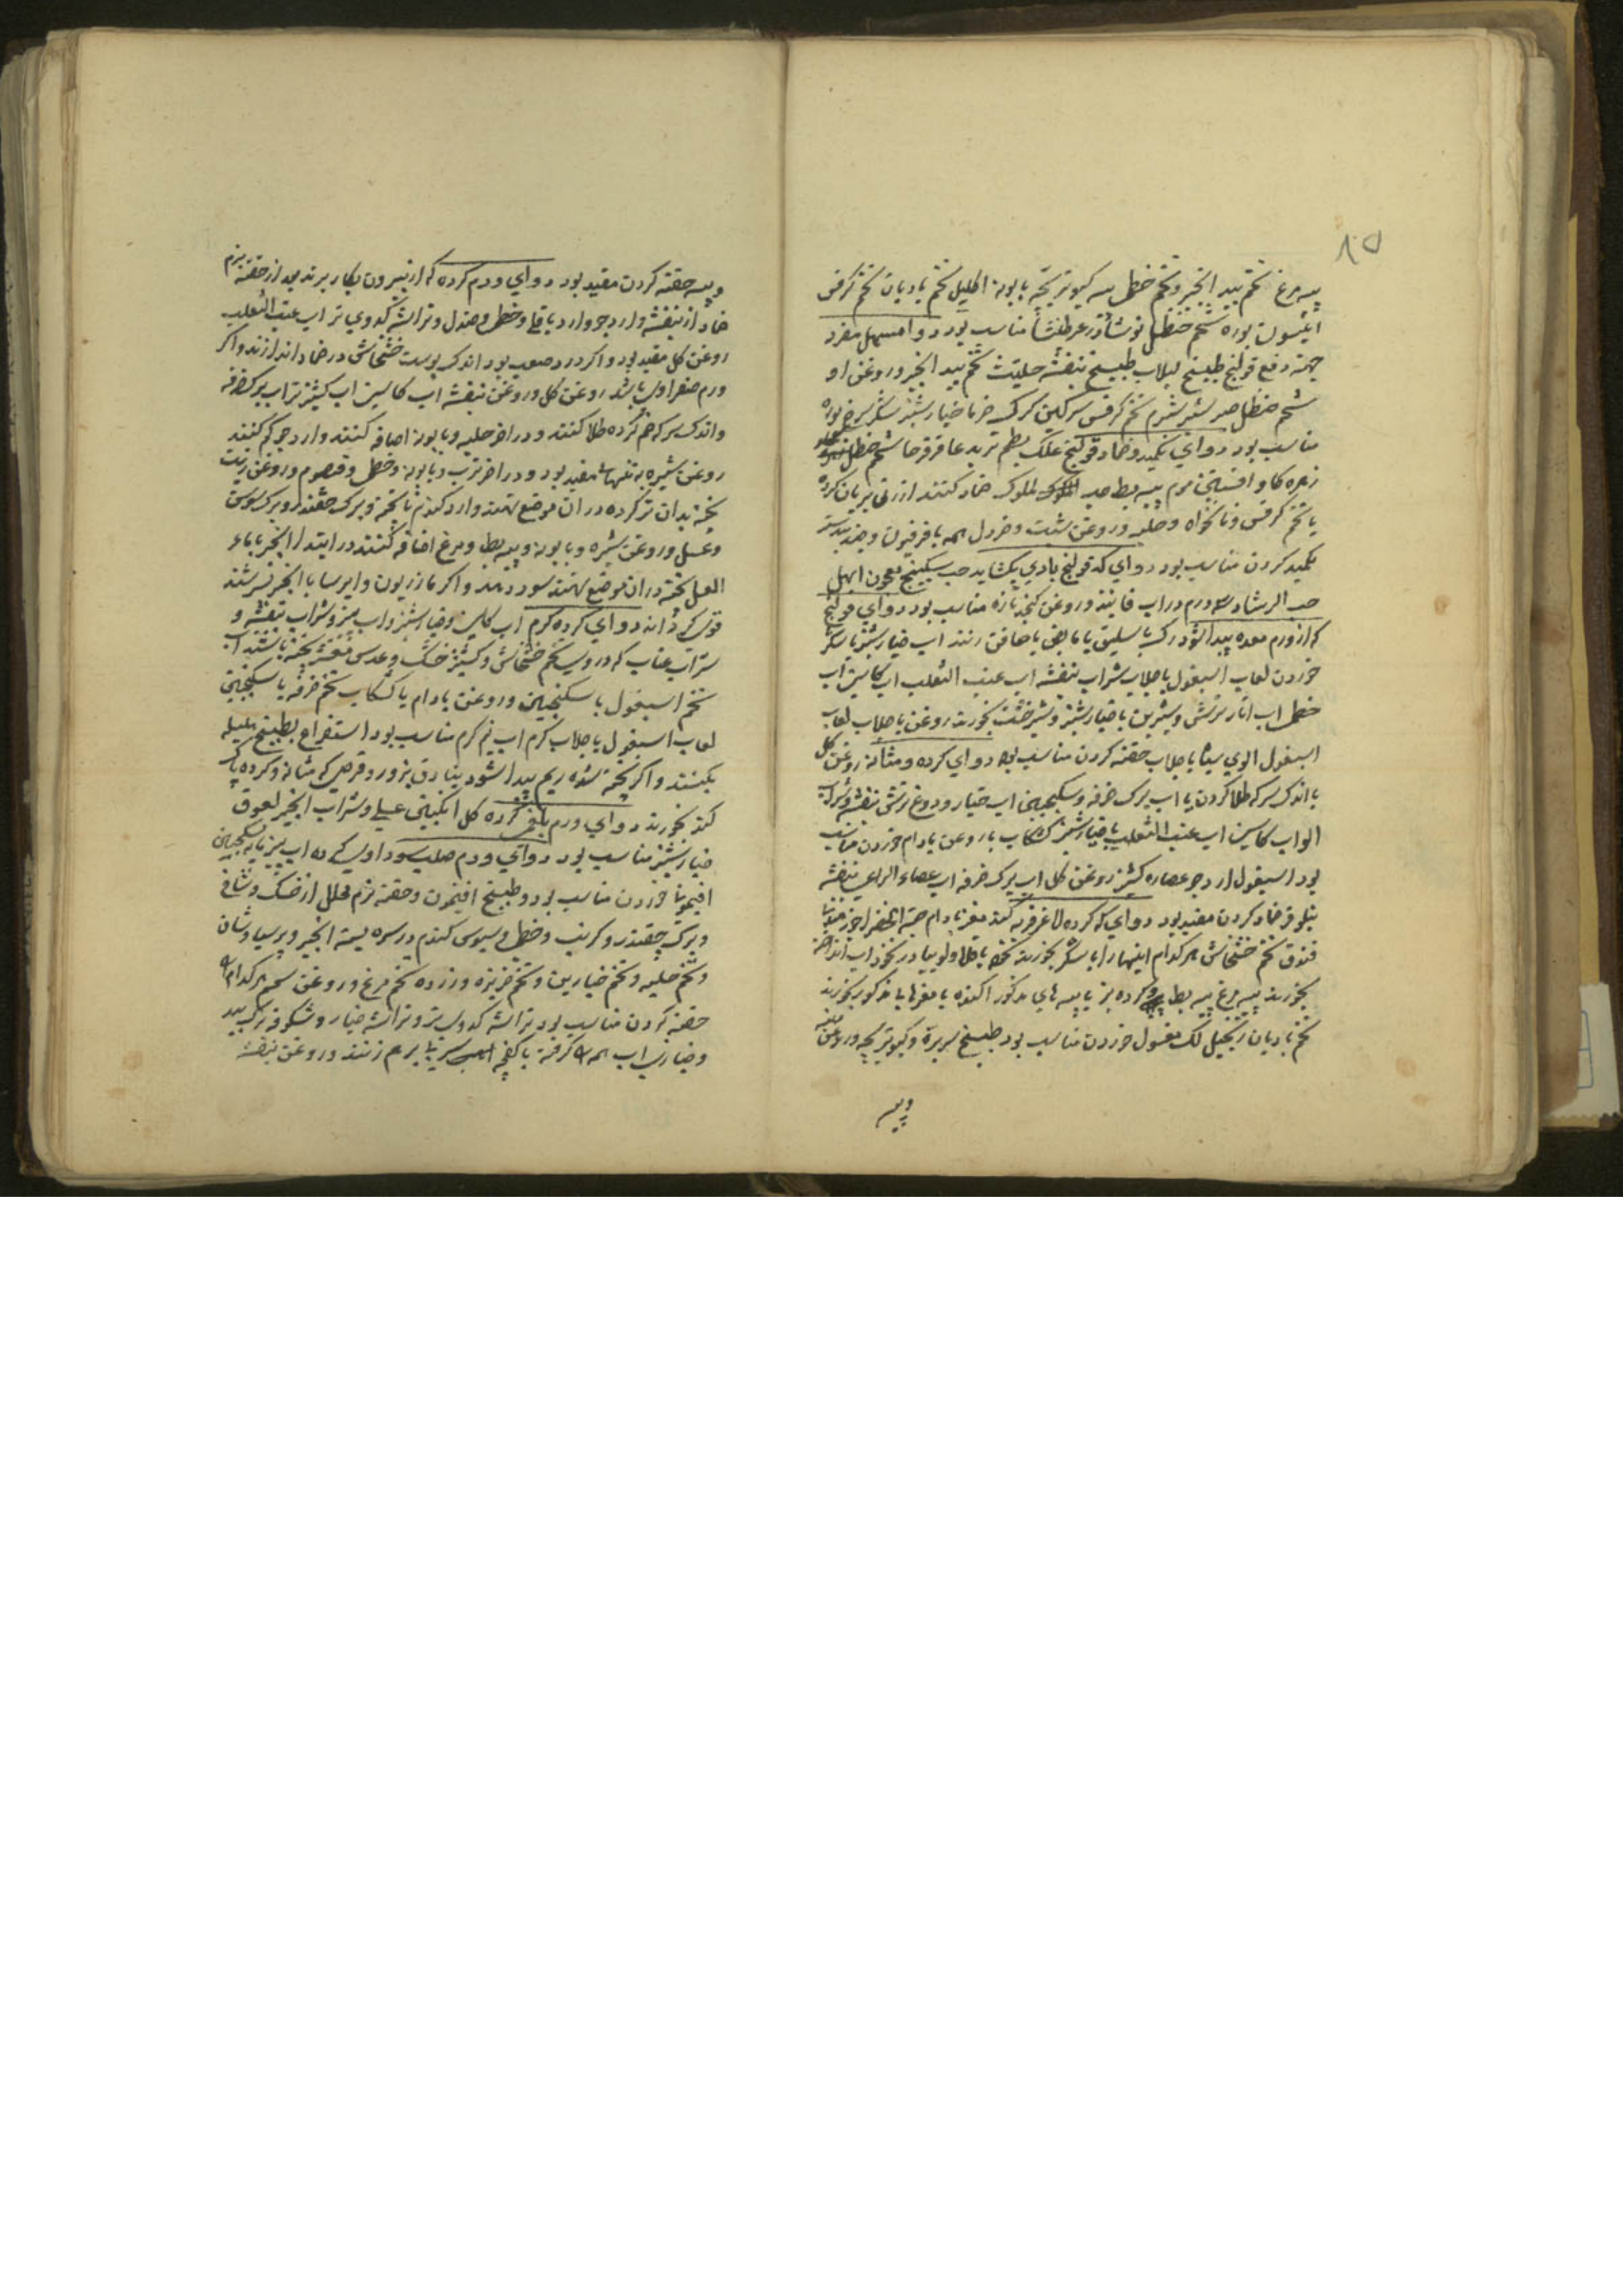 ۸۵
پیه مرغ تخم بید انجیر و تخم خطمی پیه کبوتر بچه بابونه اکلیل تخم بادیان تخم کرفس
انیسون بوره شحم حنظل نوشادر عرطنیثا مناسب بود دواء مسهل مفرد
جهته دفع قولنج طبیخ لبلاب طبیخ بنفشه حلتیت تخم بید انجیر و روغن او
شحم حنظل صبر شبرم تخم کرفس سرکین کرک خرما خیارشنبر سکر سرخ بوره
مناسب بود دوای تکمید و ضماد قولنج علک بطم تربد عاقرقرحا شحم حنظل
زهره کاو افسنتین موم پیه بط حب الملوک ضماد کنند ارزن بریان کرده
یا تخم کرفس و نانخواه و حلبه و روغن شبت و خردل همه با فرفیون و جندبیدستر
تکمید کردن مناسب بود دوای که قولنج بادی بکشاید حب سکبینج معجون ابهل
حب الرشاد سه درم در اب فانیذ و روغن کنجد تازه مناسب بود دوای قولنج
که از ورم معده پیدا شود رک باسلیق یا مابض یا صافن زنند اب خیارشنبر با سکر
خوردن لعاب اسبغول با جلاب شراب بنفشه اب عنب الثعلب اب کاسنی اب
خطمی اب انار ترش و شیرین با خیارشنبر و شیرخشت بخورند روغن با جلاب لعاب
اسبغول الوی سیاه با جلاب حقنه کردن مناسب بود دوای کرده و مثانه روغن کل
با اندک سرکه طلا کردن یا اب برک خرفه و سکنجبین اب خیار و دوغ ترش بنفشه و شراب
الو اب کاسنی اب عنب الثعلب با خیارشنبر کشکاب با روغن بادام خوردن مناسب
بود اسبغول ارد جو عصاره کشنیز روغن کل اب برک خرفه اب عصاء الراعی بنفشه
نیلوفر ضماد کردن مفید بود دوای که کرده لاغر فربه کند مغز بادام حبة الخضرا جوز
فندق تخم خشخاش هر کدام اینها را با سکر بخورند نخود باقلا و لوبیا در نخود اب انداخته
بخورند پیه مرغ پیه بط و کرده بز با پیه های مذکور اکنده با مغزها یا مذکور بخورند
تخم بادیان زنجبیل لک مغسول خوردن مناسب بود طبیخ سربره و کبوتر بچه و روغن
وپیه
وپیه حقنه کردن مفید بود دوای ورم کرده که از بیرون بکار برند بعد از حقنه نرم
ضماد از بنفشه و ارد جو و ارد باقلی و خطمی و صندل و تراشه کدوی تر اب عنب الثعلب
روغن کل مفید بود و اکر درد صعب بود اندک پوست خشخاش در ضماد اندازند و اکر
ورم صفراوی باشد روغن کل و روغن بنفشه اب کاسنی اب کشنیز تر اب برک خرفه
و اندک سرکه ضم کرده طلا کنند و در اخر حلبه و بابونه اضافه کنند و ارد جو کم کنند
روغن شیره به تنهایی مفید بود و در اخر ترب و بابونه و خطمی و قیصوم و روغن زیت
پخته بدان تر کرده در ان موضع نهند و ارد کندم نا پخته و برک چقندر و برک سوسن
و عسل و روغن شیره و بابونه و پیه بط و مرغ اضافه کنند در ابتدا انجیر با ماء
العسل پخته در ان موضع نهند سود دهد و اکر مازریون و ایرسا با انجیر سرشند
قوی کرداند دوای کرده کرم اب کاسنی و خیارشنبر و اب بیز و شراب بنفشه و
شراب عناب که در وی تخم خشخاش و کشنیز خشک و عدس مقشر پخته باشند اب
تخم اسبغول با سکنجبین و روغن بادام یا کشکاب تخم خرفه با سکنجبین
لعاب اسبغول با جلاب کرم اب نیم کرم مناسب بود استفراغ بطبیخ هلیله
بکنند و اکر پخته شده ریم پیدا شود بنادق بزور و قرص که مثانه و کرده پاک
کند بخورند دوای ورم بلغمی کرده کل انکبین عسلی و شراب انجیر لعوق
خیارشنبر مناسب بود دوای ورم صلب سوداوی کرده اب بیز با سکنجبین
افیمونا خوردن مناسب بود و طبیخ افتیمون و حقنه نرم محلل از خسک و شافی
و برک چقندر و کرنب و خطمی و سبوس کندم در سره بسته انجیر و پرسیاوشان
و تخم حلبه و تخم خیارین و تخم خربزه و زرده تخم مرغ و روغن
حقنه کردن مناسب بود تراشه کدوی تر و تراشه خیار و شکوفه برک بید
و خیار اب همه کرفته با کفچه بر هم زنند و روغن بنفشه